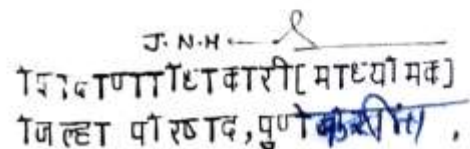 J.N.H
शिक्षणाधिकारी [माध्यमिक]
जिल्हा परिषद, पुणे करीता,